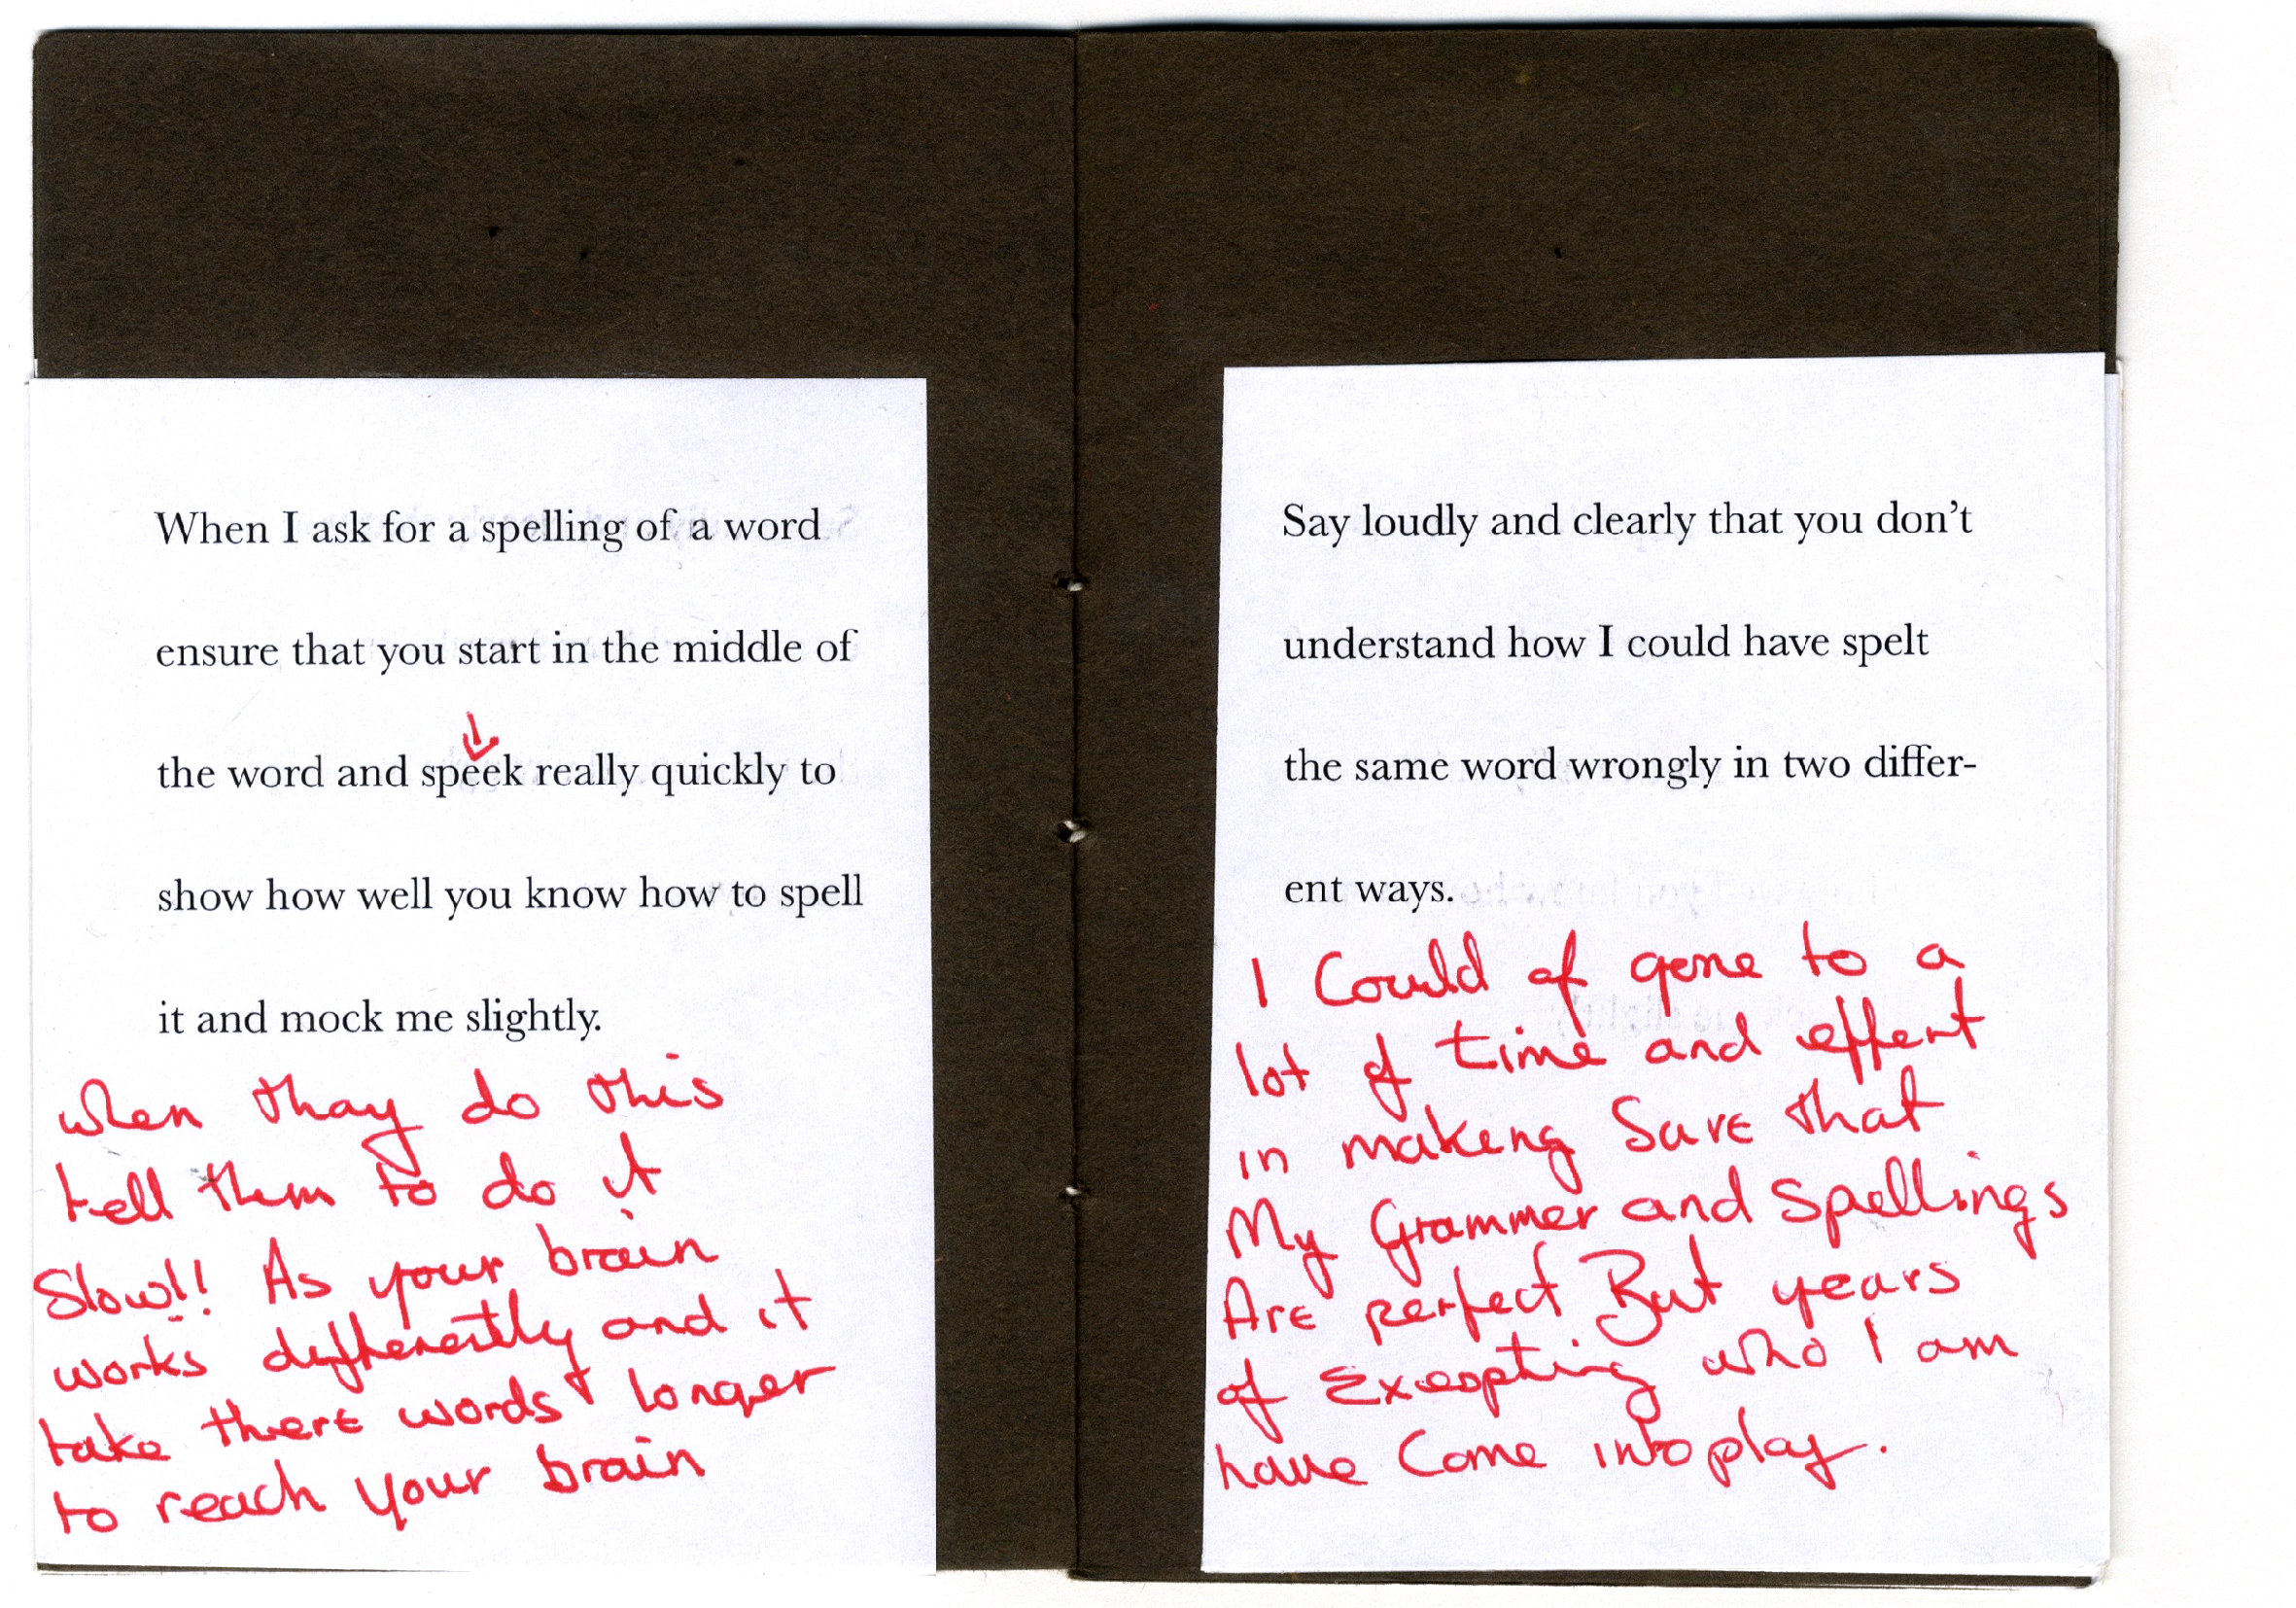 When I ask for a spelling of a word
ensure that you start in the middle of
the word and speek really quickly to
show how well you know how to spell
it and mock me slightly.
when thay do this
tell them to do it
Slow!! As your brain
works differently and it
take there words longer
to reach your brain
Say loudly and clearly that you don't
understand how I could have spelt
the same word wrongly in two differ-
ent ways.
I Could of gone to a
lot of time and effert
in makeng Sure that
My Grammer and Spellings
Are perfect But years
of Excepting who I am
have Come into play.